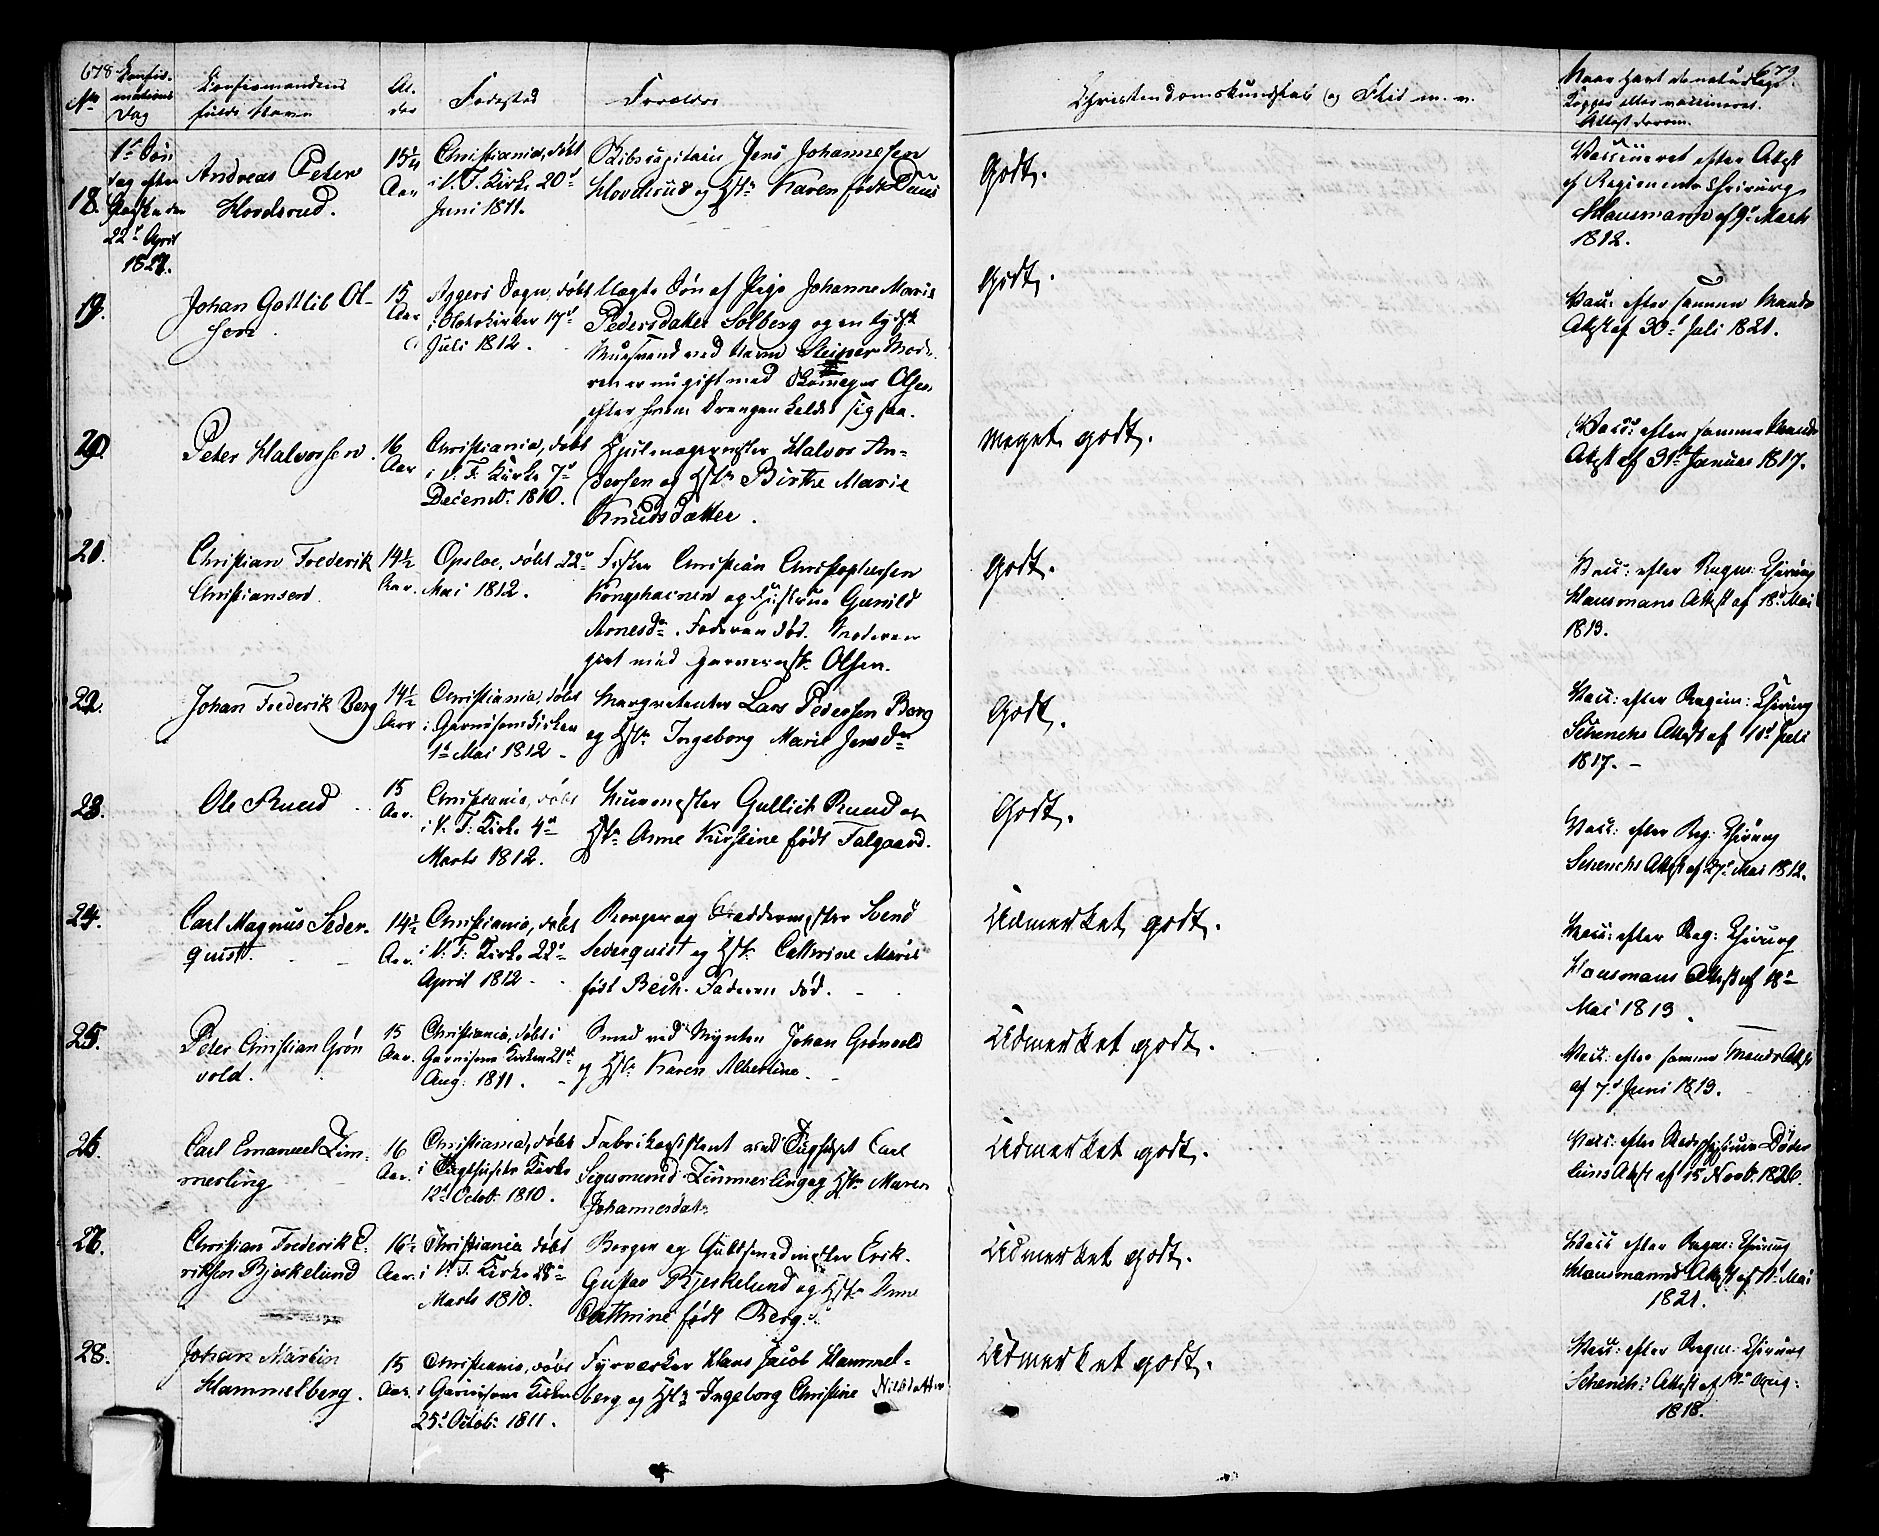 678
No
Confir-
mations
Dag
Confirmandens
fulde Navn
Al-
der
Fødested
Forældre
Christendomskundskab og Flid m. v.
679.
Naar havt de naturlige
Kopper eller vaccineret.
Attest derom.
18.
1ste Søn
dag efter
Paaske den
22de April
1827.
Andreas Peter
Hovdsrud.
15 1/4
Aar
Christiania, døbt
i V. F. Kirke 20de
Juni 1811.
Skibscapitain Jens Johannesen
Hovdsrud og Hst: Karen født
Godt.
Vaccineret efter Attest
af Regiments Chirurg
Hausmann af 9de Marts
1812.
19.
Johan Gottlib Ol-
sen.
15
Aar
Aggers Sogn, døbt
i Kirken 17de
Juli 1812.
Uægte Søn af Pige Johanne Marie
Pedersdatter Solberg og en tydsk
Muursvend ved Navn Steiner. Mod-
ren er nu gift med Skomager Olsen
efter hvem Drengen kalder sig saa.
Godt.
Vacc: efter samme Mands
Attest af 30te Juli 1821.
20.
Peter Halvorsen.
16
Aar
Christiania, døbt
i V. F. Kirke 7de
Decemb. 1810.
Hjulmagermester Halvor An-
dersen og Hst: Birthe Marie
Knudsdatter.
Meget godt.
Vacc: efter samme Mands
Attest af 31te Januar 1817.
21.
Christian Frederik
Christiansen.
14 1/2
Aar.
Opsloe, døbt 22de
Mai 1812.
Fisker Christian Christophersen
Kongshavnen og Hustrue Gunild
Arnesdr. Faderen død. Moderen
gift med Olsen.
Godt.
Vacc: efter Regm: Chirurg
Hausmans Attest af 18de Mai
1813.
22.
Johan Frederik Berg
14 1/2
Aar
Christiania, døbt
i Garnisons Kirken
1ste Mai 1812.
Marqvetenter Lars Pedersen Berg
og Hst: Ingeborg Marie Jensdr
Godt.
Vacc: efter Regim: Chirurg
Schenchs Attest af 10de Juli
1817.
23.
Ole Ruud
15
Aar.
Christiania, døbt
i V. F. Kirke 4de
Marts 1812.
Muurmester Gullich Ruud og
Hst: Anne Kirstine født Falgaard.
Godt.
Vacc: efter Reg: Chirurg
Schenchs Attest af 27de Mai 1812.
24.
Carl Magnus Seder-
quist.
14 1/2
Aar.
Christiania, døbt
i V. F. Kirke 22de
April 1812.
Borger og Skreddermester Svend
Sederquist og Hst: Cathrine Marie
født Bech. Faderen død.
Udmerket godt.
Vacc: efter Reg: Chirurg
Hausmans Attest af 18de
Mai 1813.
25.
Peter Christian Grøn
vold.
15
Aar.
Christiania, døbt i
Garnisons Kirken 21de
Aug: 1811.
Smed ved Mynten Johan Grønvold
og Hst: Karen Albertine
Udmerket godt.
Vacc: efter samme Mands Att:
af 7de Juni 1813.
26.
Carl Emanuel Zim-
merling
16
Aar.
Christiania, døbt
i Tugthusets Kirke
12te Octob: 1810.
Fabrikasistent ved Tugthuset Carl
Sigismund Zimmerling og Hst: Maren
Johannesdatr
Udmerket godt.
Vacc: efter Døder
leins Attest af 15 Novb. 1826.
27.
Christian Frederik E-
riksen Bjerkelund
16 1/2
Aar.
Christiania døbt
i V. F. Kirke 28de
Marts 1810.
Borger og Guldsmedmester Erik
Gustav Bjerkelund og Hst: Anne
Cathrine født Berg.
Udmerket godt.
Vacc efter Regm: Chirurg
Hausmanns Attest af 11te Mai
1821.
28.
Johan Martin
Hammelberg.
15
Aar.
Christiania, døbt
i Garnisons Kirken
25de Octob: 1811.
Fyrværker Hans Jacob Hammel-
berg og Hst: Ingeborg Christine Nilsdatter
Udmerket godt.
Vacc: efter Regm: Chirurg
Schenchs Attest af Aug:
1818.